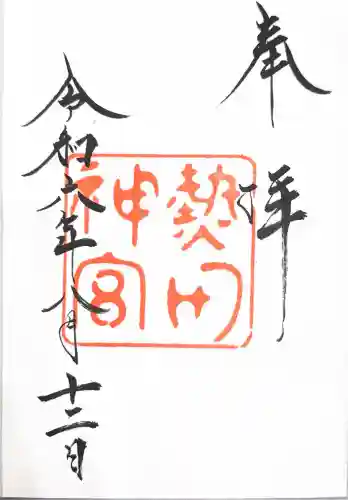 奉拝
熱田
神宮
令和六年八月十二日